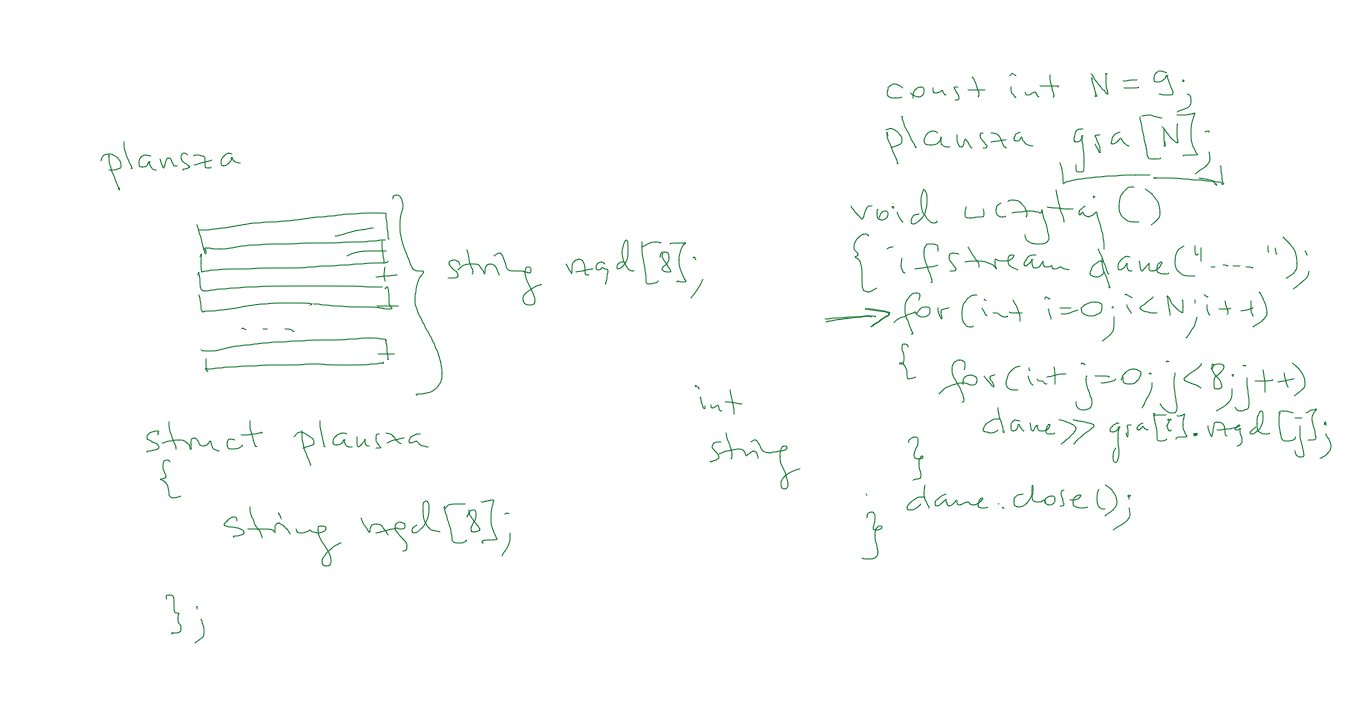 plansza
string rząd[8];
struct plansza
{
string rząd[8];
};
int
string
const int N = 9;
plansza gra[N];
void wczytaj()
{ ifstream dane("....");
for(int i=0;i<N;i++)
{
for(int j=0;j<8;j++)
dane>>gra[i].rząd[j];
}
dane.close();
}